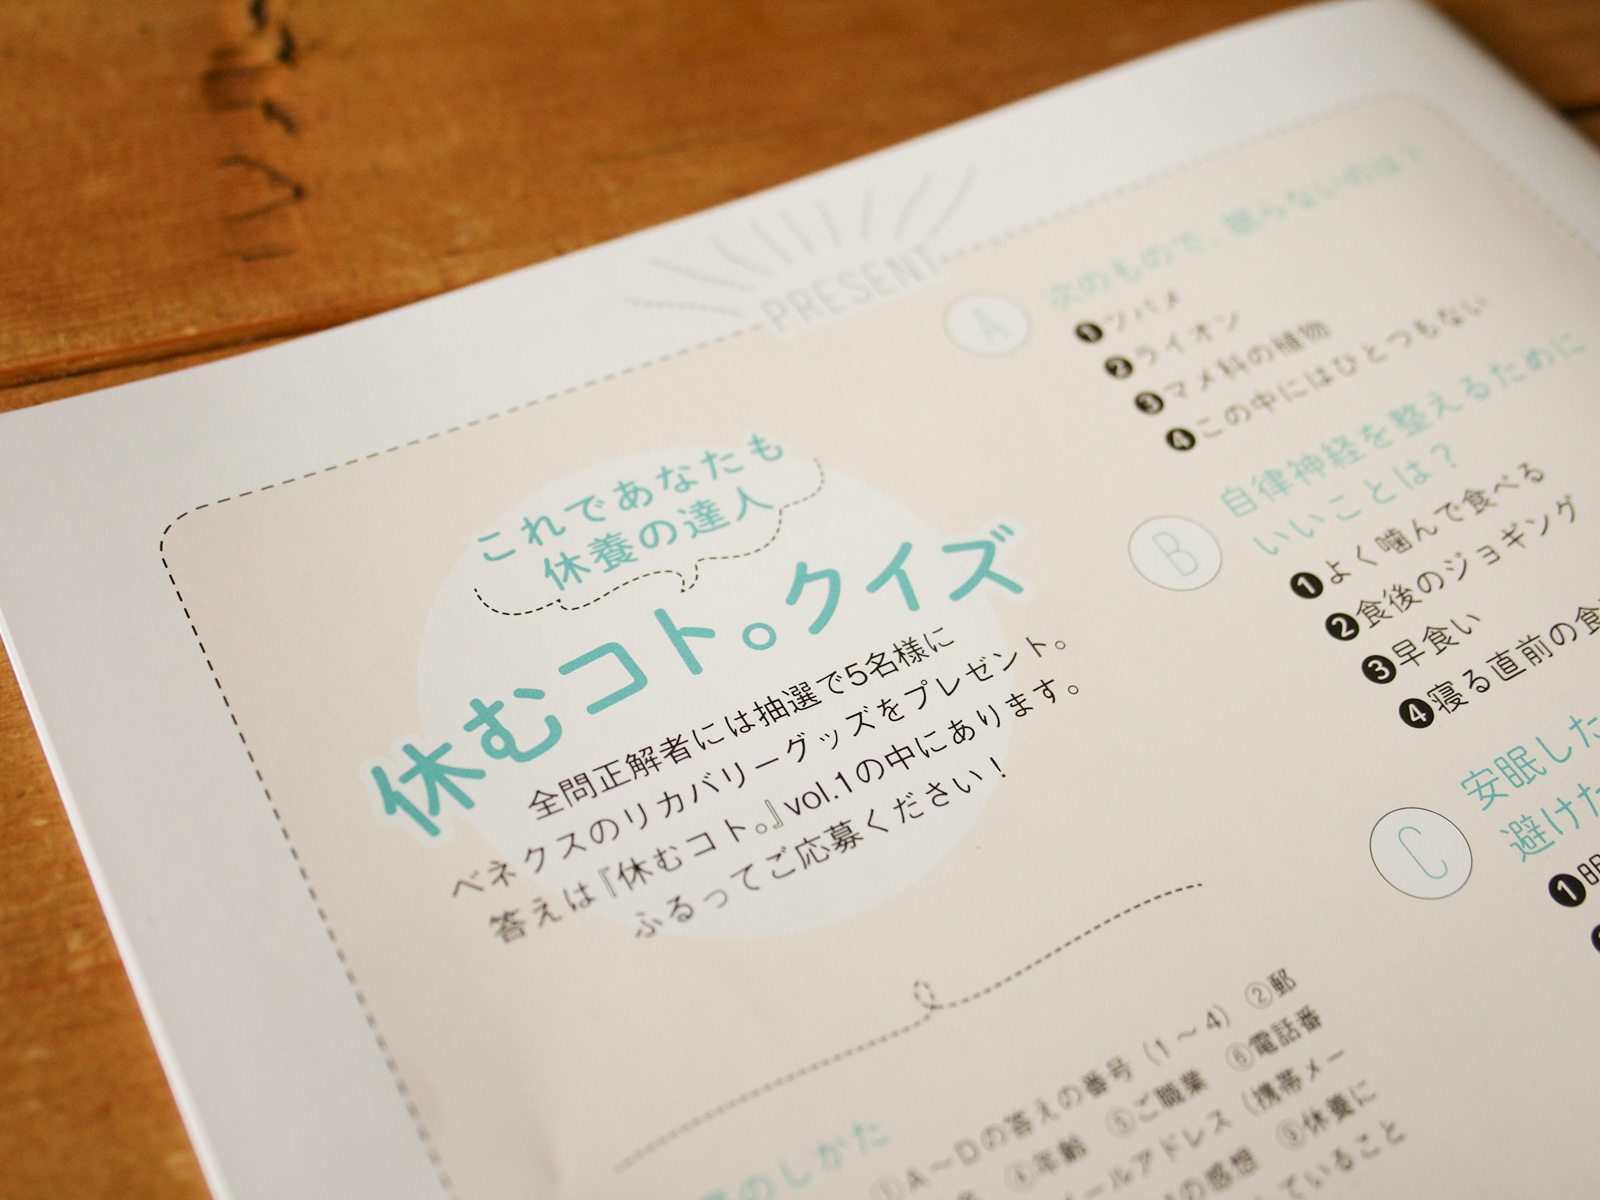 PRESENT
これであなたも
休養の達人
休むコト。クイズ
全問正解者には抽選で5名様に
ベネクスのリカバリーグッズをプレゼント。
答えは『休むコト。』vol.1の中にあります。
ふるってご応募ください！
A
次のもので、眠らないのは？
❶ツバメ
❷ライオン
❸マメ科の植物
❹この中にはひとつもない
B
自律神経を整えるために
いいことは？
❶よく噛んで食べる
❷食後のジョギング
❸早食い
❹寝る直前の食
C
安眠した
避けた
❶
のしかた
①A～Dの答えの番号（1～4） ②郵
④年齢 ⑤ご職業 ⑥電話番
メールアドレス（携帯メー
の感想 ⑨休養に
していること